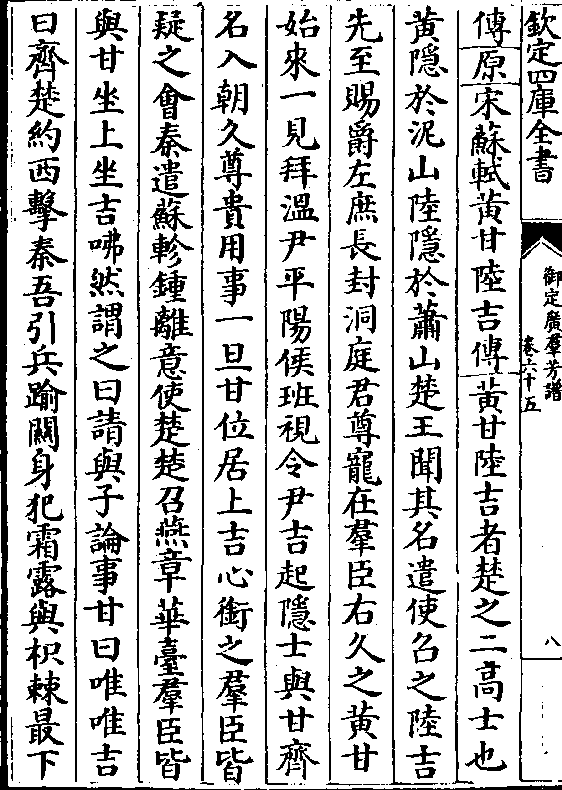 欽定四庫全書
御定廣羣芳譜
卷六十五
八
傳原宋蘇軾黃甘陸吉傳黃甘陸吉者楚之二高士也
黃隱於泥山陸隱於蕭山楚王聞其名遣使召之陸吉
先至賜爵左庶長封洞庭君尊寵在羣臣右久之黃甘
始來一見拜溫尹平陽侯班視令尹吉起隱士與甘齊
名入朝久尊貴用事一旦甘位居上吉心銜之羣臣皆
疑之會秦遣蘇軫鍾離意使楚楚召燕章華臺羣臣皆
與甘坐上坐吉咈然謂之曰請與子論事甘曰唯唯吉
曰齊楚約西擊秦吾引兵踰關身犯霜露與枳棘最下